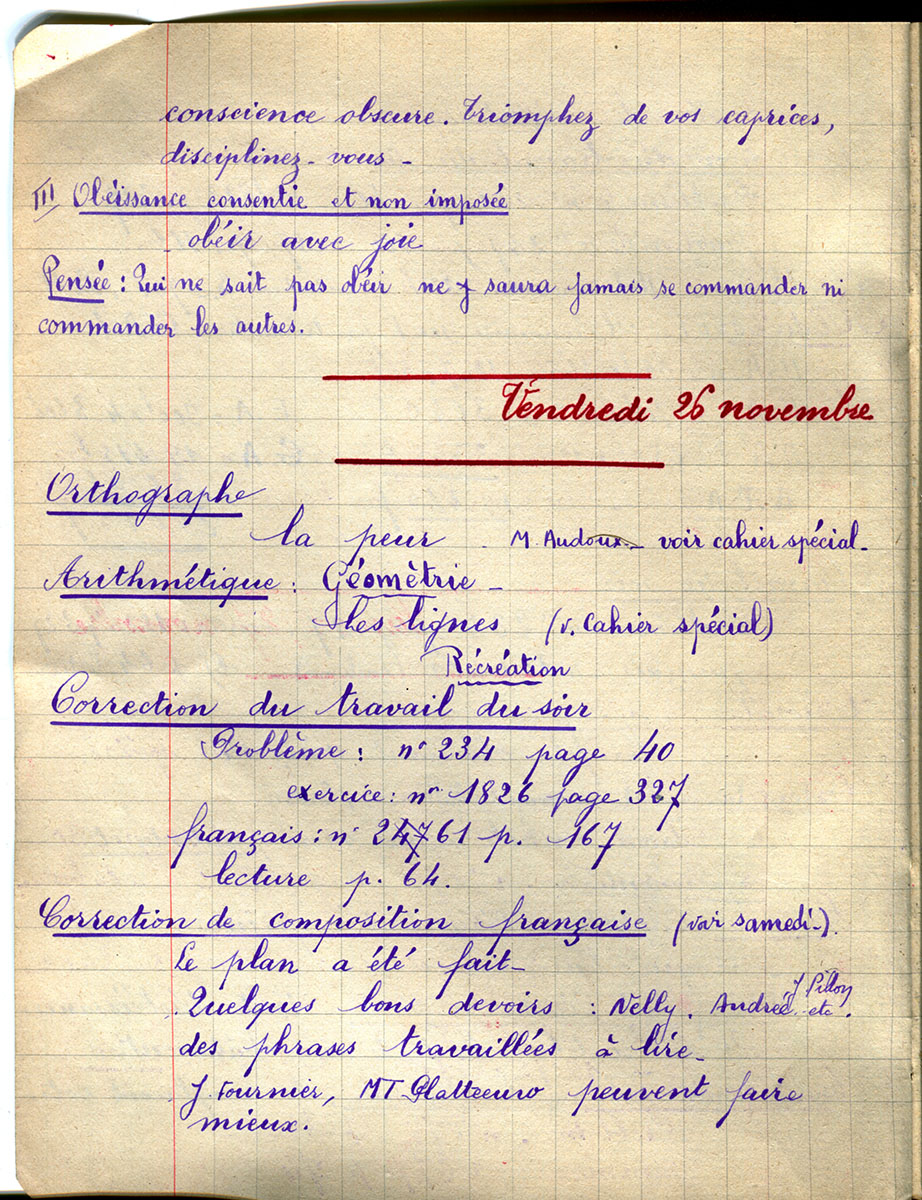 conscience obscure. Triomphez de vos caprices,
disciplinez-vous -
III Obéissance consentie et non imposée
obéir avec joie
Pensée : Qui ne sait pas obéir ne saura jamais se commander ni
commander les autres.
Vendredi 26 novembre
Orthographe
La peur M. Audoux - voir cahier spécial -
Arithmétique : Géomètrie -
Les lignes (v. Cahier spécial)
Récréation
Correction du travail du soir
Problème : n° 234 page 40
exercice : n° 1826 page 327
français : n° 24761 p. 167
lecture p. 64.
Correction de composition française (voir samedi -).
Le plan a été fait -
Quelques bons devoirs : Nelly, Andrée, J Pillon etc.
des phrases travaillées à lire -
J. Fournier, MT peuvent faire
mieux.